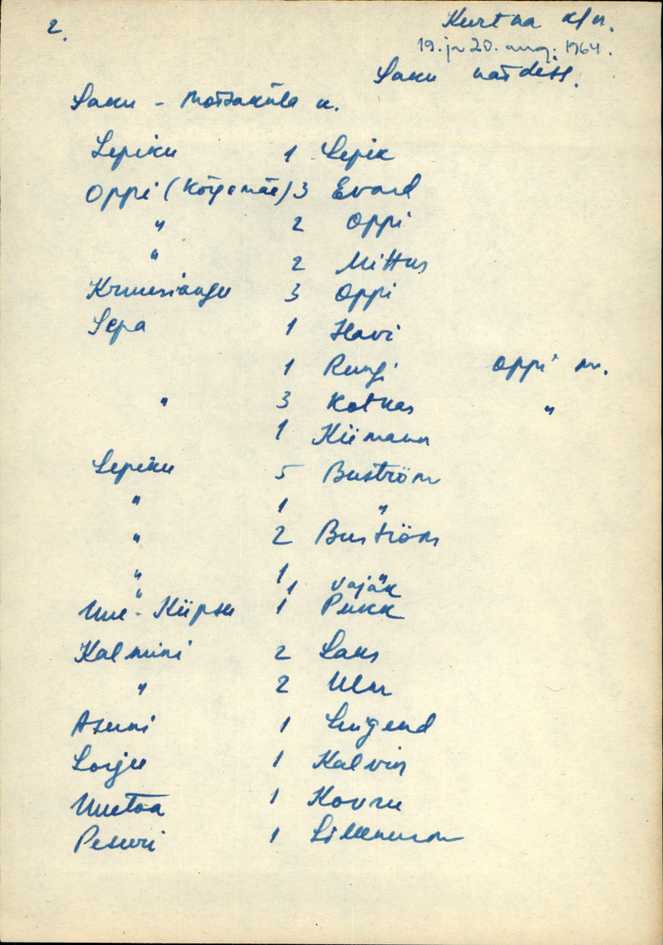 2.
Kurtna k/n.
19. ja 20. aug. 1964.
Saku
Saku - Metsaküla k.
Lepiku 1 Lepik
Oppi (Kõrgemäe) 3 Evard
" 2 Oppi
" 2 Mittus
Kruusiaugu 3 Oppi
Sepa 1 Havi
1 Rungi Oppi m.
" 3 Kotkas "
1 Kiimann
Lepiku 5 Buström
" 1 "
" 2 Buström
" 1 "
" 1 Vajak
Uue-Kiipsu 1 Pukk
Kalmini 2 Laks
" 2 Ulm
Asumi 1 Luigend
Lorju 1 Kalvin
Uuetoa 1 Kouru
1